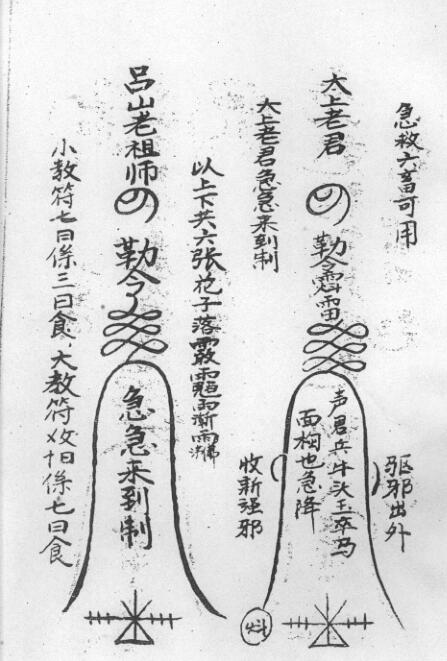 急救六畜可用
太上老君
勅令霹雷
声君兵牛头王卒马
面柳也急阵
驱邪出外
收新强邪
太上老君急急来到制
以上下共六张花子落
吕山老祖师
勅令
急急来到制
小教符七日係三日食、大教符
日係七日食